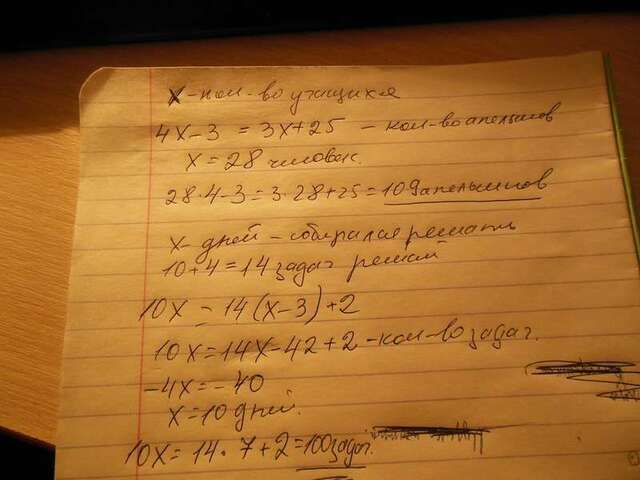 x - кол-во учащихся
4x-3 = 3x+25 - кол-во апельсинов
x = 28 человек.
28·4-3=3·28+25=109 апельсинов
x- дней - собирался решать
10+4=14 задач решал
10x = 14(x-3)+2
10x=14x-42+2 - кол-во задач.
-4x=-40
x=10 дней.
10x=14·7+2=100 задач.